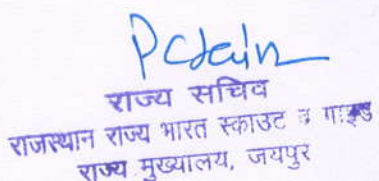 PCJain
राज्य सचिव
राजस्थान राज्य भारत स्काउट व गाइड
राज्य मुख्यालय, जयपुर